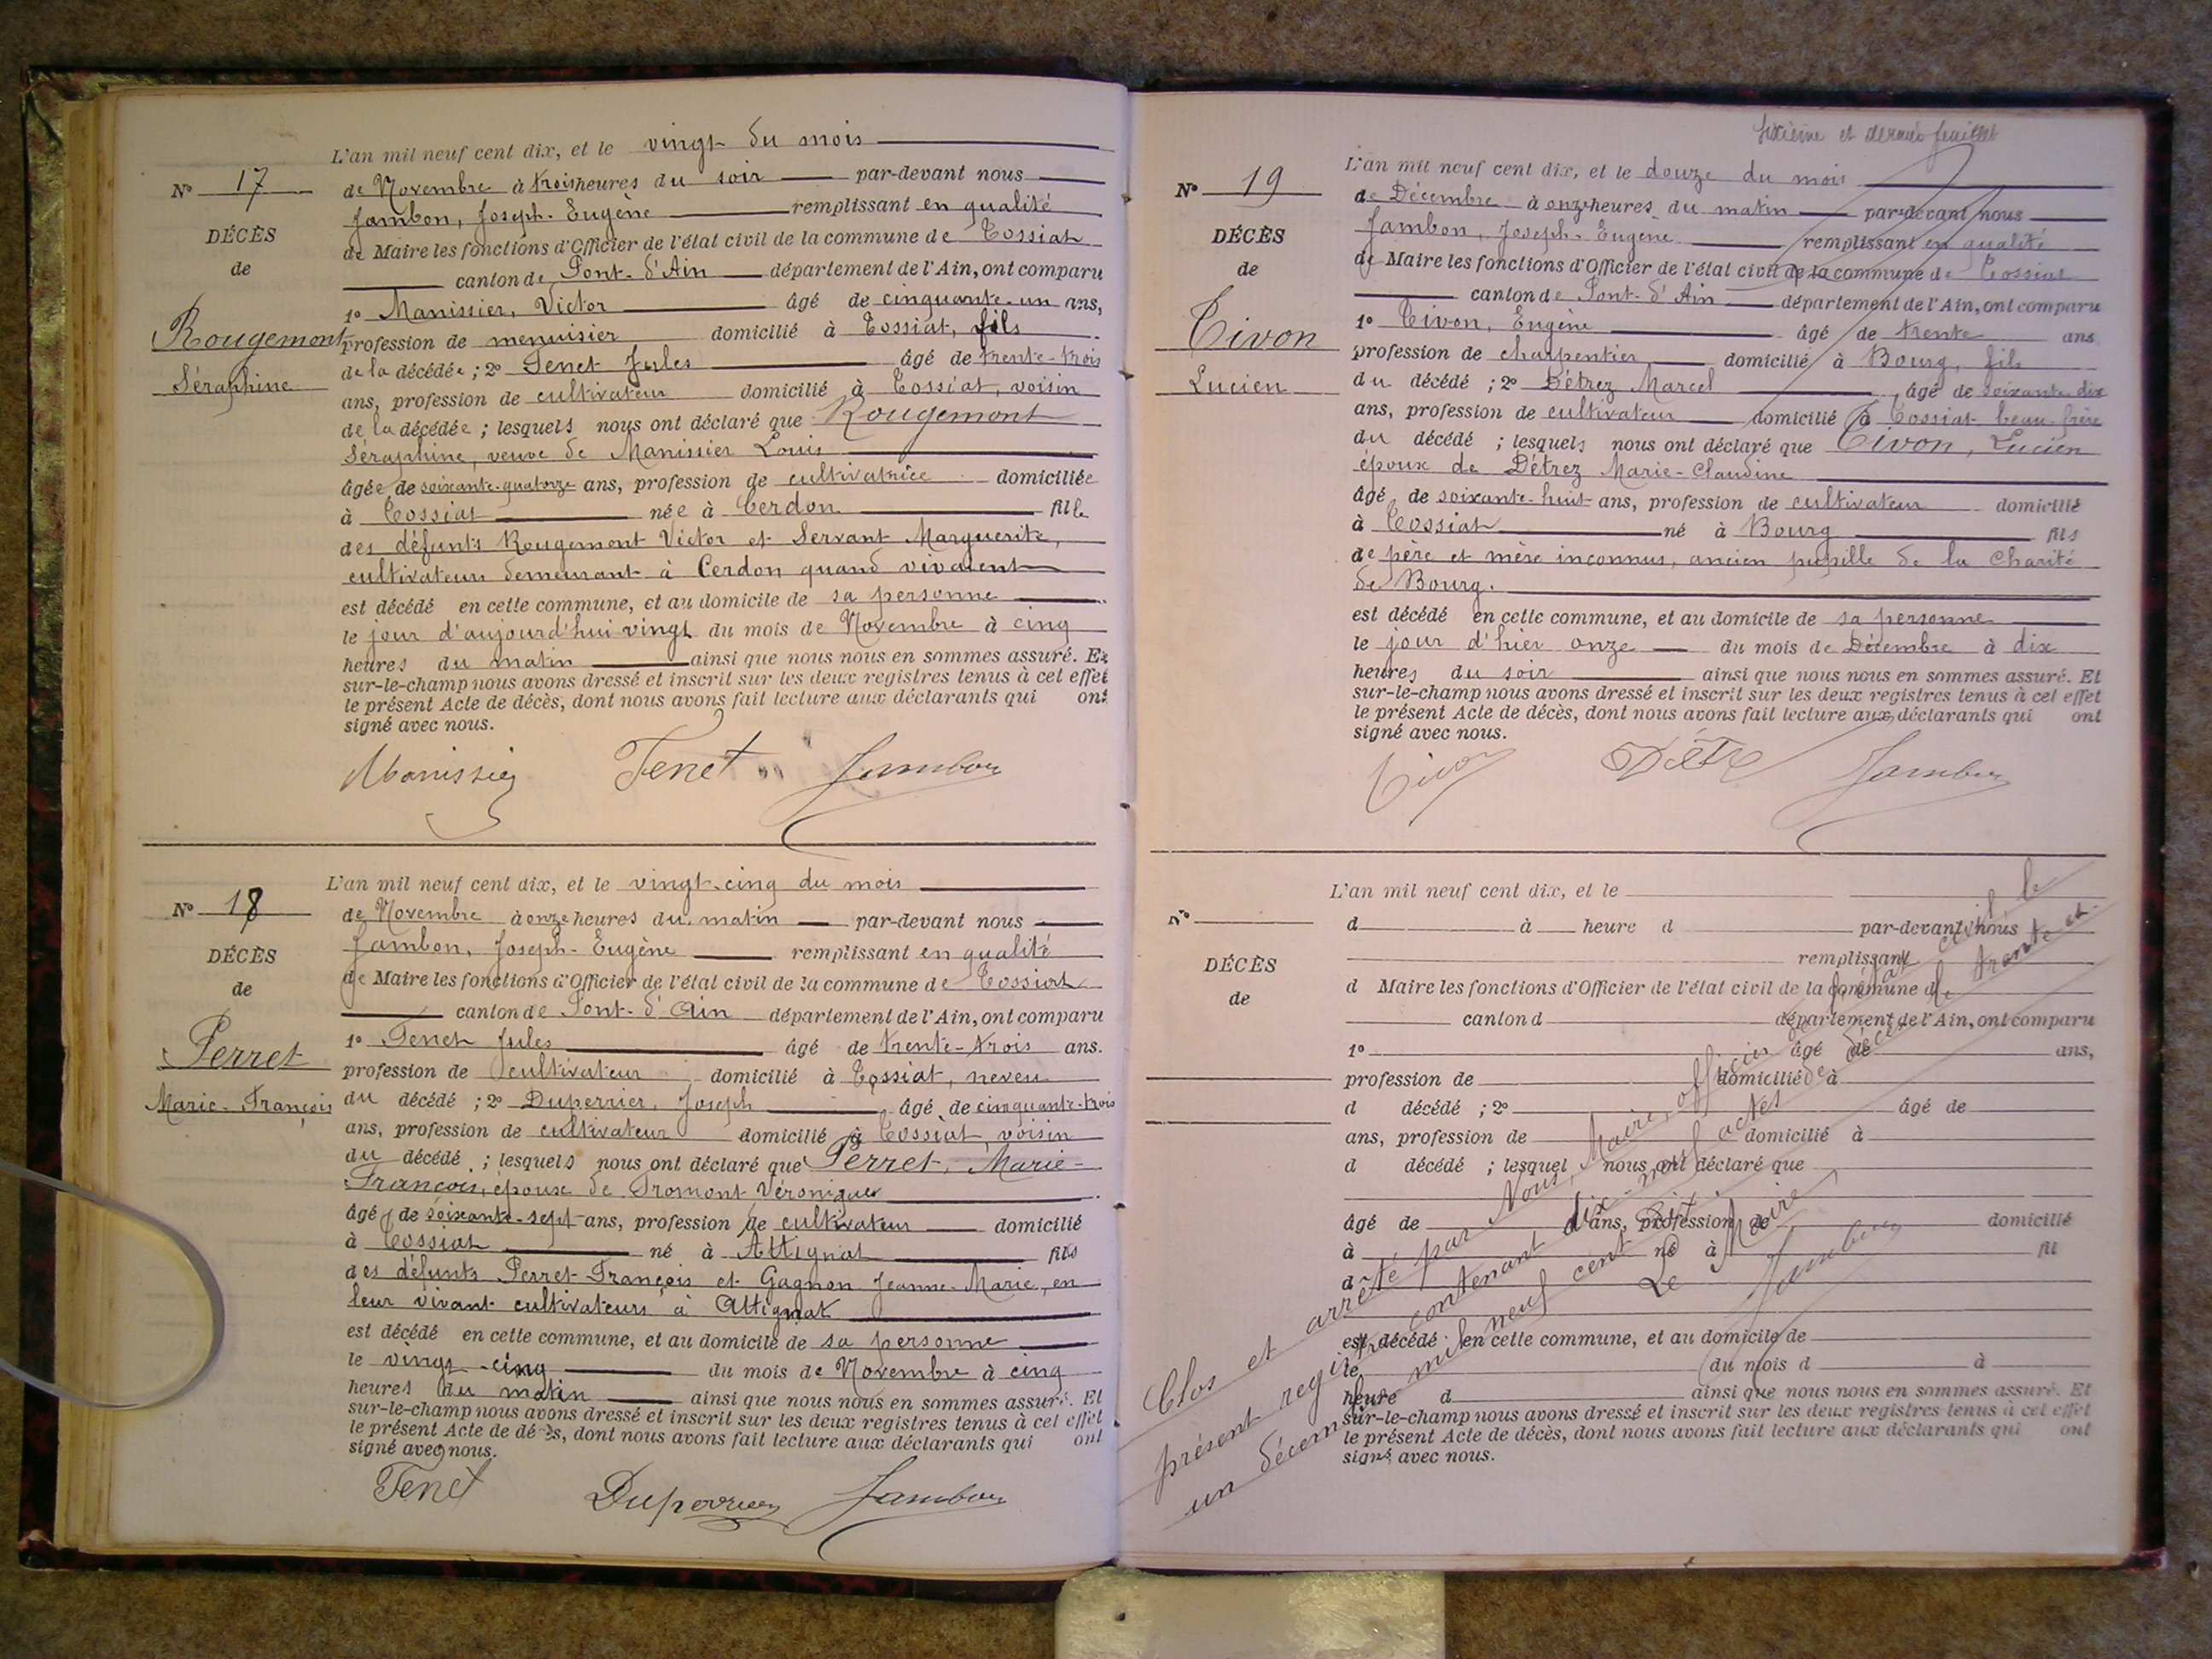 L'an mil neuf cent dix, et le vingt du mois
N° 17
de Novembre à trois heures du soir par-devant nous
Jambon, Joseph-Eugène remplissant en qualité
DÉCÈS
de Maire les fonctions d'Officier de l'état civil de la commune de Tossiat
de
canton de Pont-d'Ain département de l'Ain, ont comparu
1° Manissier, Victor âgé de cinquante-un ans,
Rougemont
profession de menuisier domicilié à Tossiat, fils
Séraphine
de la décédée ; 2° Tenet Jules âgé de trente-trois
ans, profession de cultivateur domicilié à Tossiat, voisin
de la décédée ; lesquels nous ont déclaré que Rougemont
Séraphine, veuve de Manissier Louis
âgée de soixante-quatorze ans, profession de cultivatrice domiciliée
à Tossiat née à Cerdon fille
des défunts Rougemont Victor et Servant Marguerite,
cultivateurs demeurant à Cerdon quand vivaient
est décédé en cette commune, et au domicile de sa personne
le jour d'aujourd'hui vingt du mois de Novembre à cinq
heures du matin ainsi que nous nous en sommes assuré. Et
sur-le-champ nous avons dressé et inscrit sur les deux registres tenus à cet effet
le présent Acte de décès, dont nous avons fait lecture aux déclarants qui ont
signé avec nous.
Manissier Tenet Jambon
L'an mil neuf cent dix, et le vingt-cinq du mois
N° 18
de Novembre à onze heures du matin par-devant nous
Jambon, Joseph-Eugène remplissant en qualité
DÉCÈS
de Maire les fonctions d'Officier de l'état civil de la commune de Tossiat
de
canton de Pont-d'Ain département de l'Ain, ont comparu
1° Tenet Jules âgé de trente-trois ans.
Perret
profession de cultivateur domicilié à Tossiat, neveu
Marie-François
du décédé ; 2° Duperrier, Joseph âgé de cinquante-trois
ans, profession de cultivateur domicilié à Tossiat, voisin
du décédé ; lesquels nous ont déclaré que Perret, Marie-
François, époux de Fromont Véronique
âgé de soixante-sept ans, profession de cultivateur domicilié
à Tossiat né à Attignat fils
des défunts Perret François et Gagnon Jeanne-Marie, en
leur vivant cultivateurs à Attignat
est décédé en cette commune, et au domicile de sa personne
le vingt-cinq du mois de Novembre à cinq
heures du matin ainsi que nous nous en sommes assuré. Et
sur-le-champ nous avons dressé et inscrit sur les deux registres tenus à cet effet
le présent Acte de décès, dont nous avons fait lecture aux déclarants qui ont
signé avec nous.
Tenet Duperrier Jambon
et dernier feuillet
L'an mil neuf cent dix, et le douze du mois
N° 19
de Décembre à onze heures du matin par-devant nous
Jambon, Joseph-Eugène remplissant en qualité
DÉCÈS
de Maire les fonctions d'Officier de l'état civil de la commune de Tossiat
de
canton de Pont-d'Ain département de l'Ain, ont comparu
1° Tivon, Eugène âgé de trente ans
Tivon
profession de charpentier domicilié à Bourg, fils
Lucien
du décédé ; 2° Détrez Marcel âgé de soixante-dix
ans, profession de cultivateur domicilié à Tossiat beau-frère
du décédé ; lesquels nous ont déclaré que Tivon, Lucien
époux de Détrez Marie-Claudine
âgé de soixante-huit ans, profession de cultivateur domicilié
à Tossiat né à Bourg fils
de père et mère inconnus, ancien pupille de la Charité
de Bourg.
est décédé en cette commune, et au domicile de sa personne
le jour d'hier onze du mois de Décembre à dix
heures du soir ainsi que nous nous en sommes assuré. Et
sur-le-champ nous avons dressé et inscrit sur les deux registres tenus à cet effet
le présent Acte de décès, dont nous avons fait lecture aux déclarants qui ont
signé avec nous.
Tivon Jambon
L'an mil neuf cent dix, et le
N°
d à heure d par-devant nous
remplissant
DÉCÈS
d Maire les fonctions d'Officier de l'état civil de la commune d
de
canton d département de l'Ain, ont comparu
1° âgé de ans,
profession de domicilié à
d décédé ; 2° âgé de
ans, profession de domicilié à
d décédé ; lesquel nous ont déclaré que
âgé de ans, profession de domicilié
à né à fil
d
est décédé en cette commune, et au domicile de
le du mois d à
heure d ainsi que nous nous en sommes assuré. Et
sur-le-champ nous avons dressé et inscrit sur les deux registres tenus à cet effet
le présent Acte de décès, dont nous avons fait lecture aux déclarants qui ont
signé avec nous.
Clos et arrêté par Nous, Maire, officier de l'état civil le
présent registre contenant dix-neuf actes de décès le trente et
un décembre mil neuf cent dix.
Le Maire,
Jambon